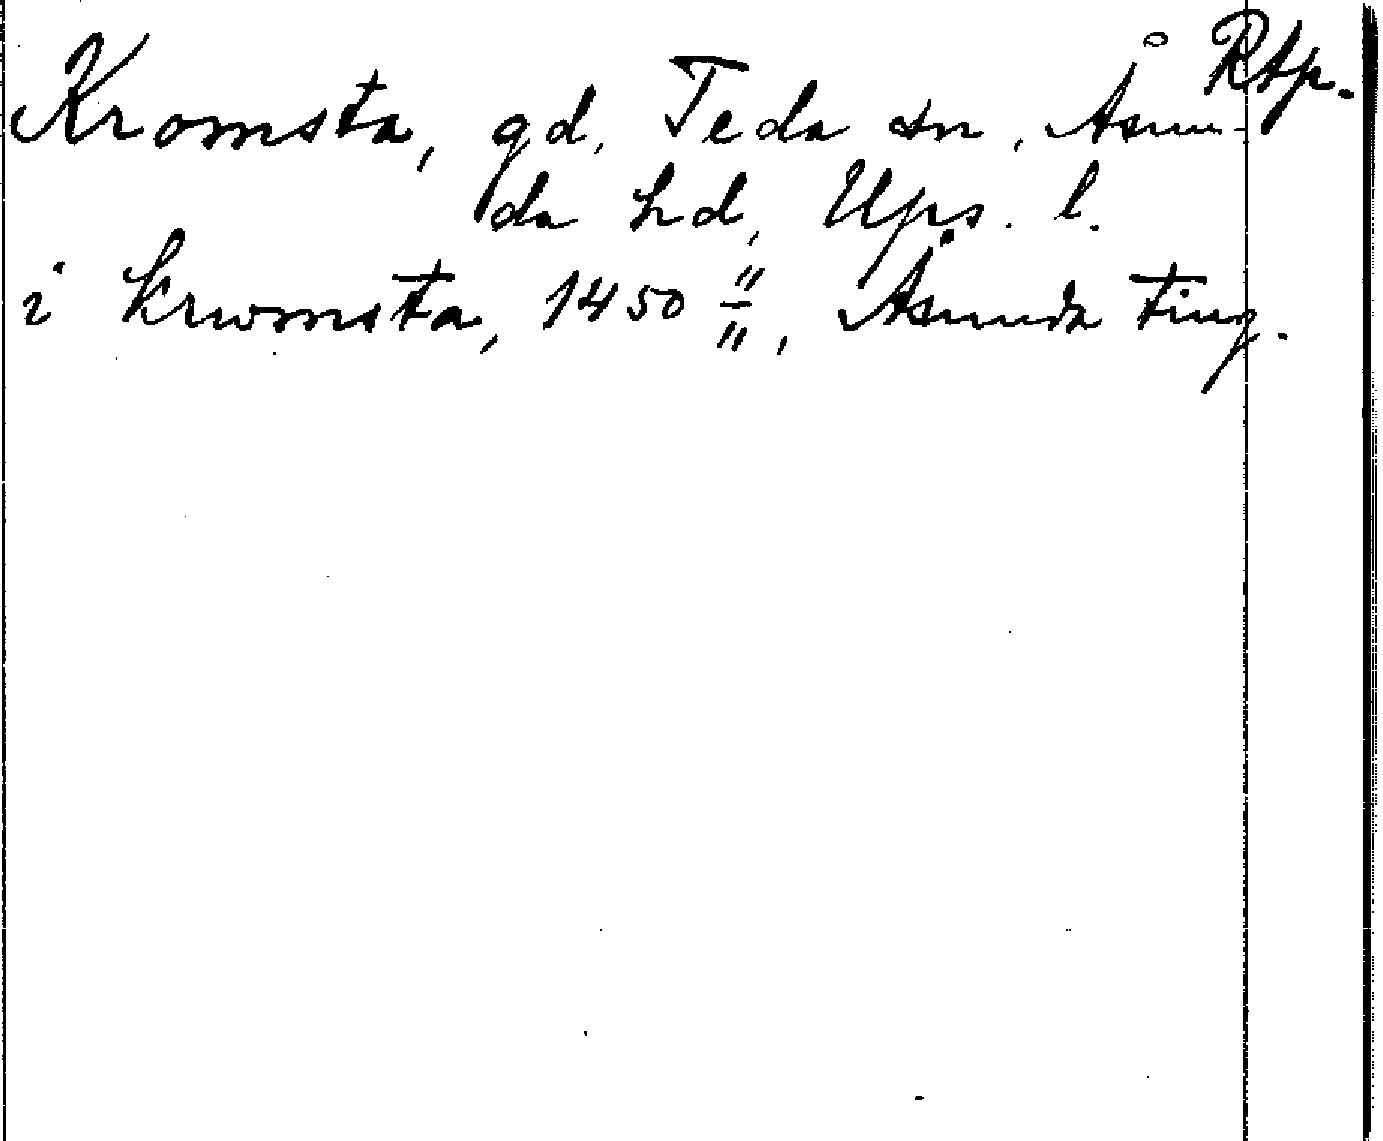 Rtp.
Kromsta, gd, Teda sn, Åsun-
da hd, Ups. l.
i krwmsta, 1450 11/11, Åsunda ting.